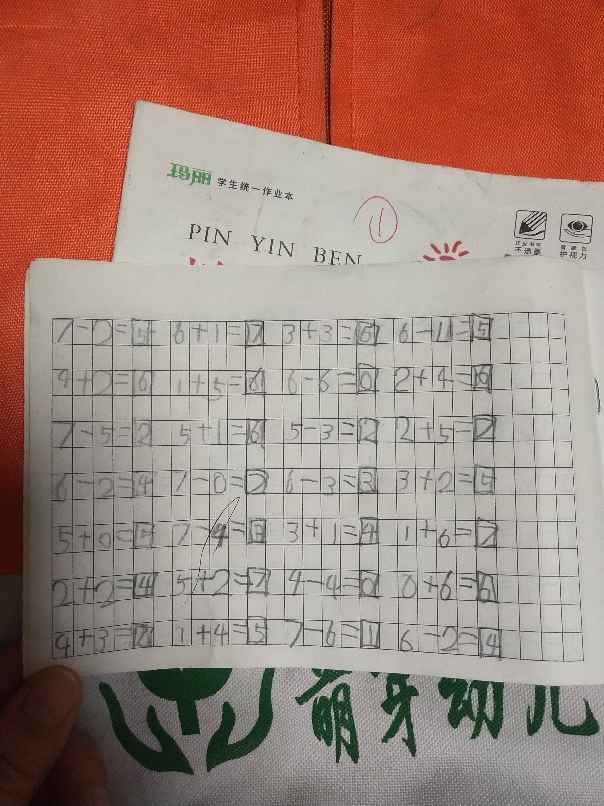 玛丽 学生统一作业本
1
PIN YIN BEN
不透墨 护视力
7-2=5 6+1=7 3+3=6 6-1=5
4+2=6 1+5=6 6-6=0 2+4=6
7-5=2 5+1=6 5-3=2 2+5=7
6-2=4 7-0=7 6-3=3 3+2=5
5+0=5 7-4=3 3+1=4 1+6=7
2+2=4 5+2=7 4-4=0 0+6=6
4+3=7 1+4=5 7-6=1 6-2=4
萌芽幼儿